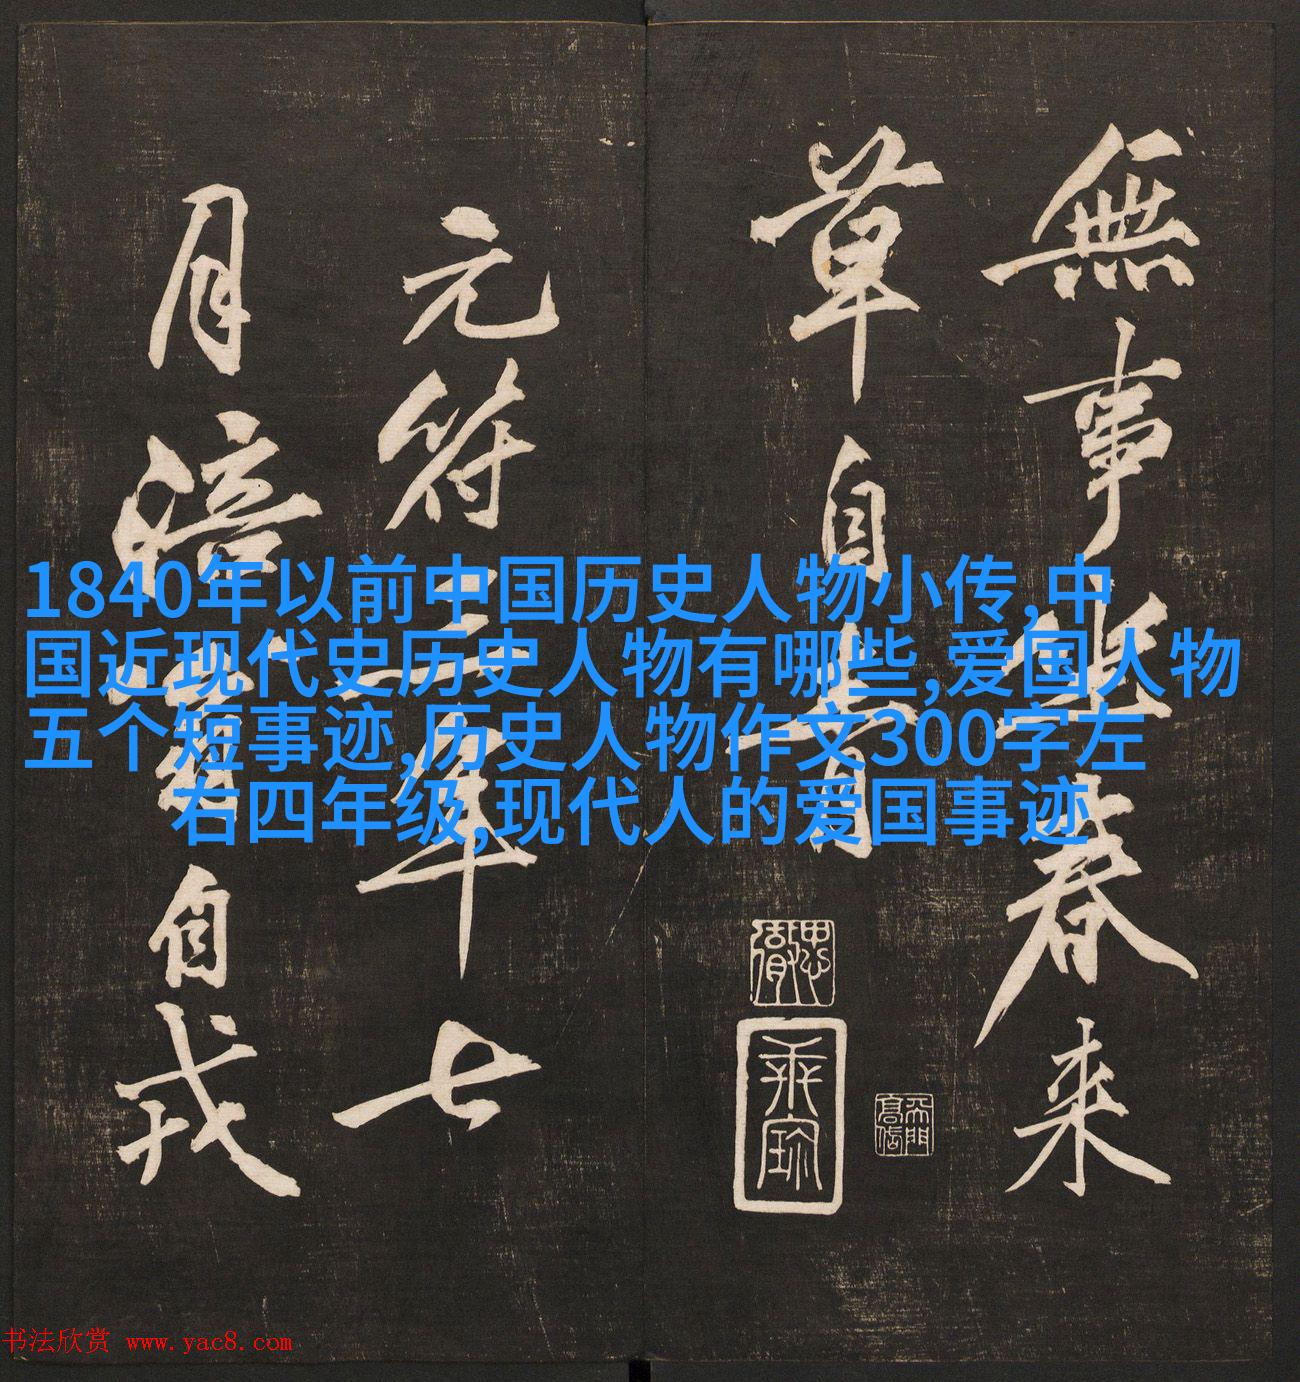 無事坐春来
草自青
元符三年七
月涪翁自戎
1840年以前中国历史人物小传,中
国近现代史历史人物有哪些,爱国人物
五个短事迹,历史人物作文300字左
右四年级,现代人的爱国事迹
书法欣赏 www.yac8.com